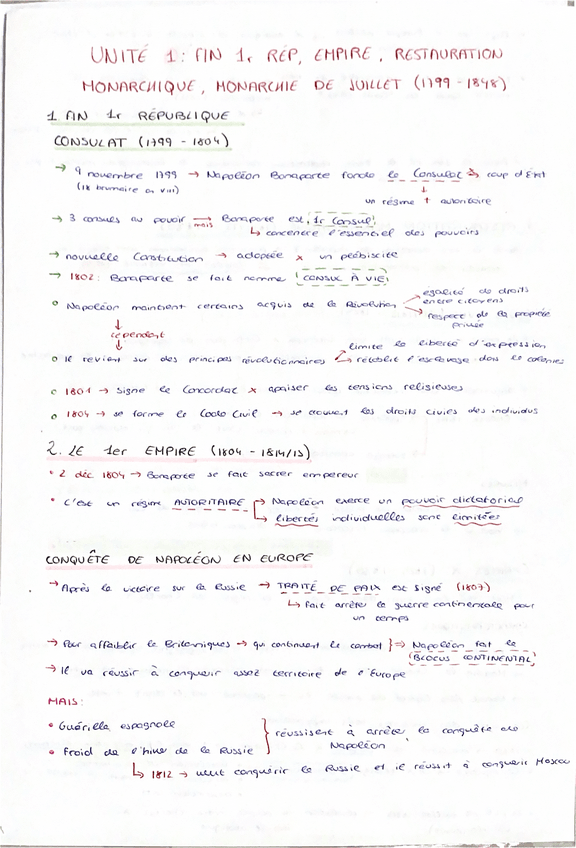 UNITÉ 1: FIN 1r RÉP, EMPIRE, RESTAURATION
MONARCHIQUE, MONARCHIE DE JUILLET (1799-1848)
1 FIN 1r RÉPUBLIQUE
CONSULAT (1799 - 1804)
→ 9 novembre 1799 → Napoléon Bonaparte fonde le Consulat → coup d'État
(18 brumaire an VIII)
↓
un régime + autoritaire
→ 3 consuls au pouvoir → mais Bonaparte est 1r Consul
↳ concentre l'essentiel des pouvoirs
→ nouvelle Constitution → adoptée x un plébiscite
→ 1802: Bonaparte se fait nomme CONSUL À VIE
° Napoléon maintient certains acquis de la Révolution → egalité de droits entre citoyens
→ respect de la propriété privée
↓
cependant
↓
° Il revient sur des principes révolutionnaires → limite la liberté d'expression
→ rétablit l'esclavage dans les colonies
° 1801 → signe le Concordat x apaiser les tensions religieuses
° 1804 → se forme le Code Civil → se trouvent les droits civiles des individus
2. LE 1er EMPIRE (1804 - 1814/15)
• 2 déc 1804 → Bonaparte se fait sacrer empereur
• C'est un régime AUTORITAIRE → Napoléon exerce un pouvoir dictatorial
↳ libertés individuelles sont limitées
CONQUÊTE DE NAPOLÉON EN EUROPE
→ Après la victoire sur la Russie → TRAITÉ DE PAIX est signé (1807)
↳ fait arrêter la guerre continentale pour
un temps
→ Pour affaiblir le Britanniques → qui continuent le combat } → Napoléon fait le
BLOCUS CONTINENTAL
→ Il va réussir à conquerir assez territoire de l'Europe
MAIS:
• Guérilla espagnole
• Froid de l'hiver de la Russie
} réussissent à arrêter la conquête de
Napoléon
↳ 1812 → veut conquérir la Russie et il réussit à conquerir Moscou